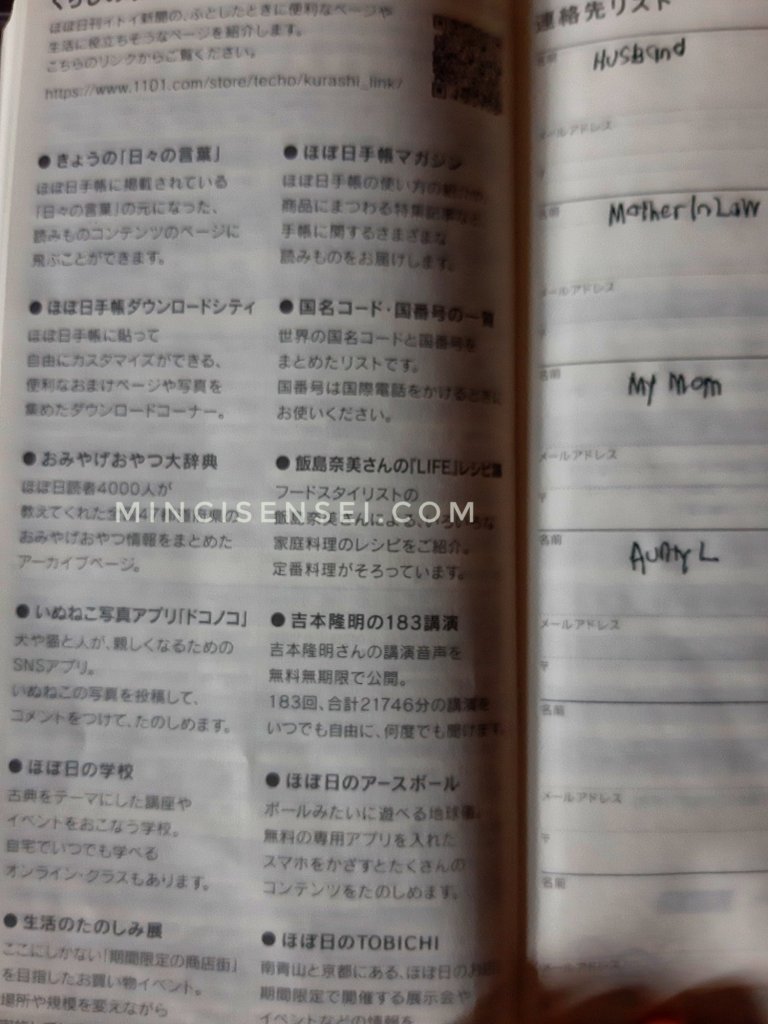 ほぼ日刊イトイ新聞の、ふとしたときに便利なページや
生活に役立ちそうなページを紹介します。
こちらのリンクからご覧ください。
https://www.1101.com/store/techo/kurashi_link/
● きょうの「日々の言葉」
ほぼ日手帳に掲載されている
「日々の言葉」の元になった、
読みものコンテンツのページに
飛ぶことができます。
● ほぼ日手帳ダウンロードシティ
ほぼ日手帳に貼って
自由にカスタマイズができる、
便利なおまけページや写真を
集めたダウンロードコーナー。
● おみやげおやつ大辞典
ほぼ日読者4000人が
教えてくれた全国47都道府県の
おみやげおやつ情報をまとめた
アーカイブページ。
● いぬねこ写真アプリ「ドコノコ」
犬や猫と人が、親しくなるための
SNSアプリ。
いぬねこの写真を投稿して、
コメントをつけて、たのしめます。
● ほぼ日の学校
古典をテーマにした講座や
イベントをおこなう学校。
自宅でいつでも学べる
オンライン・クラスもあります。
● 生活のたのしみ展
ここにしかない「期間限定の商店街」
を目指したお買い物イベント。
場所や規模を変えながら
● ほぼ日手帳マガジン
ほぼ日手帳の使い方の紹介や
商品にまつわる特集記事など
手帳に関するさまざまな
読みものをお届けします。
● 国名コード・国番号の一覧
世界の国名コードと国番号を
まとめたリストです。
国番号は国際電話をかけるときに
お使いください。
● 飯島奈美さんの『LIFE』レシピ集
フードスタイリストの
飯島奈美さんによる、いろいろな
家庭料理のレシピをご紹介。
定番料理がそろっています。
● 吉本隆明の183講演
吉本隆明さんの講演音声を
無料無期限で公開。
183回、合計21746分の講演を
いつでも自由に、何度でも聞けます。
● ほぼ日のアースボール
ボールみたいに遊べる地球儀。
無料の専用アプリを入れた
スマホをかざすとたくさんの
コンテンツをたのしめます。
● ほぼ日のTOBICHI
南青山と京都にある、ほぼ日のお店
期間限定で開催する展示会や
イベントなどの情報を
連絡先リスト
名前 Husband
メールアドレス
〒
名前 Mother In Law
メールアドレス
〒
名前 My Mom
メールアドレス
〒
名前 Aunty L
メールアドレス
〒
名前
メールアドレス
〒
名前
メールアドレス
MINCISENSEI.COM